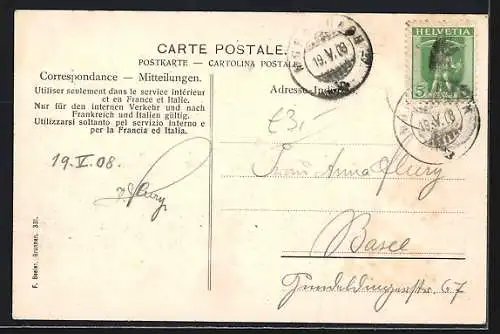 CARTE POSTALE.
POSTKARTE — CARTOLINA POSTALE
Correspondance — Mitteilungen.
Utiliser seulement dans le service intérieur
et ea France et Italie.
Nur für den internen Verkehr und nach
Frankreich und Italien gültig.
Utilizzarsi soltanto pel servizio interno e
per la Francia ed Italia.
Adresse
HELVETIA
5
19.V.09
19.V.09
19.V.08.
Frau Anna Flury
Basel
Gundeldingerstr. 67
F. Beeler, Brunnen. 351.